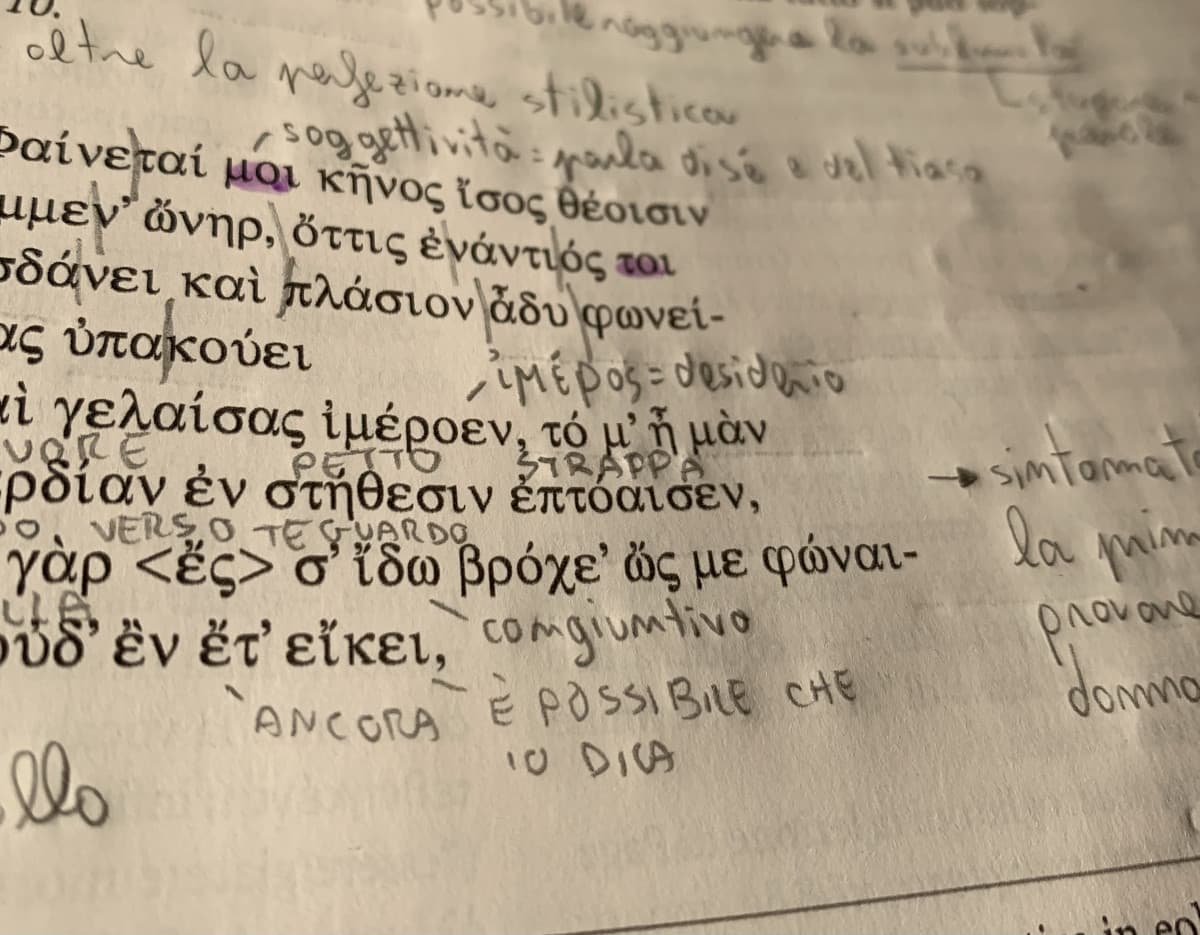 10.
possibile raggiungere la
oltre la perfezione stilistica
soggettività = parla di sé e del tiaso
Φαίνεταί μοι κῆνος ἴσος θέοισιν
μμεν’ ὤνηρ, ὄττις ἐνάντιός τοι
σδάνει καὶ πλάσιον ἆδυ φωνεί-
ας ὐπακούει
ἰμέρος = desiderio
αὶ γελαίσας ἰμέροεν, τό μ’ ἦ μὰν
UORE PETTO STRAPPA
ρδίαν ἐν στήθεσιν ἐπτόαισεν,
→ sintomat
DO VERSO TE GUARDO
γὰρ <ἔς> σ’ ἴδω βρόχε’ ὤς με φώναι-
la
congiuntivo
provare
οὐδ’ ἒν ἔτ’ εἴκει,
donna
ANCORA È POSSIBILE CHE
IO DICA
llo
in